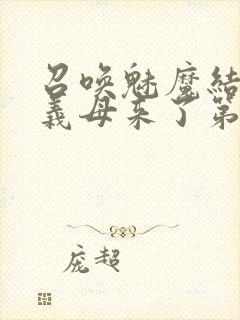 召唤魅魔结
義母来了第
庞超